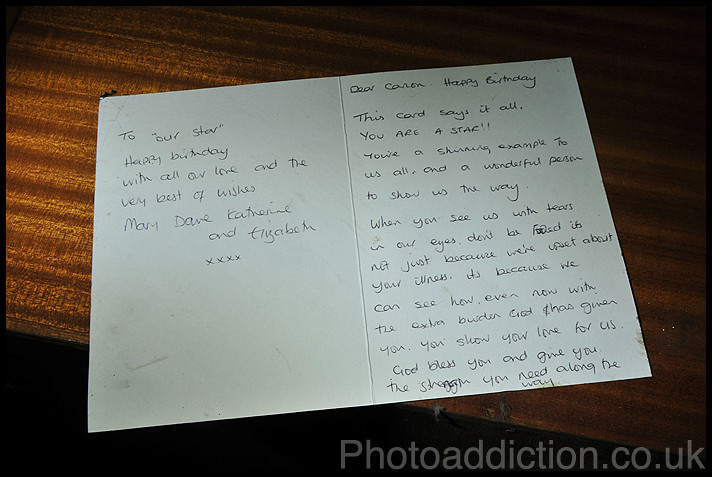 To "our star"
Happy birthday
with all our love and the
very best of wishes
Mary Dave Katherine
and Elizabeth
xxxx
Dear Canon. Happy Birthday
This card says it all,
YOU ARE A STAR!!
You're a shinning example to
us all, and a wonderful person
to show us the way.
When you see us with tears
in our eyes, don't be fooled its
not just because we're upset about
your illness, its because we
can see how, even now with
the extra burden God has given
you, you show your love for us.
God bless you and give you
the strength you need along the
way.
Photoaddiction.co.uk